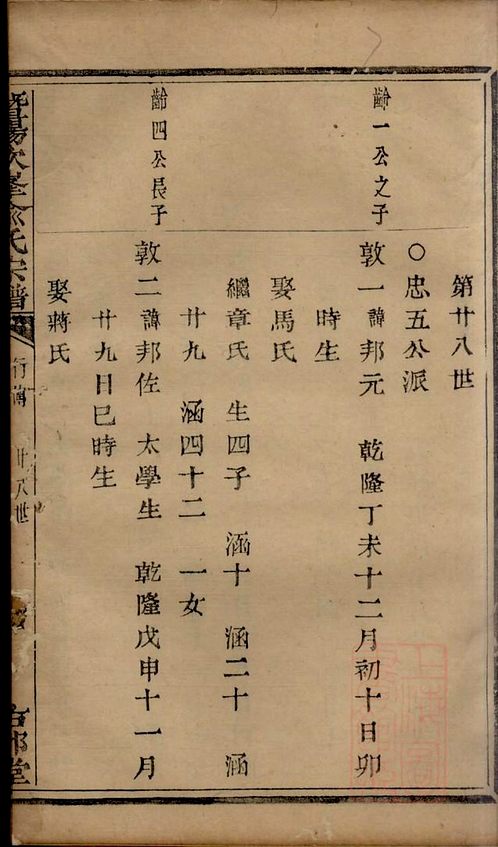 第廿八世
○忠五公派
齡一公之子
敦一諱邦元 乾隆丁未十二月初十日卯
時生
娶馬氏
繼章氏 生四子 涵十 涵二十 涵
廿九 涵四十二 一女
齡四公長子
敦二諱邦佐 太學生 乾隆戊申十一月
廿九日巳時生
娶蔣氏
暨陽次峯俞氏宗譜
行傳 廿八世